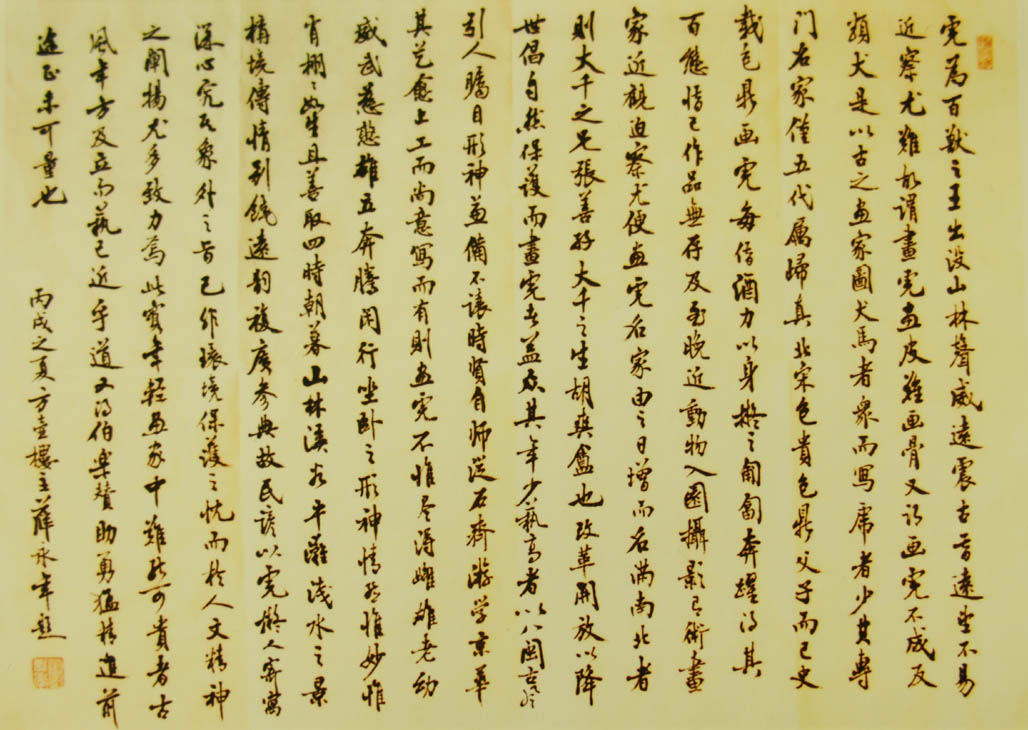 虎為百獸之王出没山林聲威遠震古昔遠望不易
近察尤難故谓畫虎画皮難画骨又云画虎不成反
類犬是以古之画家圖犬馬者衆而写虎者少其專
门名家僅五代厲歸真北宋包貴包鼎父子而已史
载包鼎画虎每借酒力以身擬之匍匐奔躍得其
百態惜已作品無存及至晚近動物入園攝影有術畫
家近觀迫察尤便画虎名家由之日增而名满南北者
則大千之兄張善孖大千之生胡爽盦也改革開放以降
世倡自然保護而畫虎者益众其年少藝高者以八閩
引人矚目形神兼備不讓時賢自師從石齊游学京華
其艺愈上工而尚意寫而有則画虎不惟尽得雌雄老幼
威武憨雄五奔騰闲行坐卧之形神情態惟妙惟
肖栩栩如生且善取四時朝暮山林溪谷平灘浅水之景
構境傳情别饒遠韵複廣参典故民谚以虎擬人寄寓
深心究其象外之旨已作環境保護之忱而於人文精神
之闡揚尤多致力焉此實年轻画家中難能可貴者古
風年方及立而藝已近乎道又得伯樂赞助勇猛精進前
途正未可量也
丙戌之夏方壶樓主薛永年题